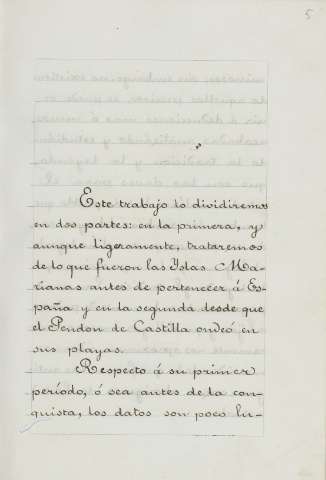 5
Este trabajo lo dividiremos
en dos partes: en la primera, y
aunque ligeramente, trataremos
de lo que fueron las Yslas Ma-
rianas antes de pertenecer á Es-
paña y en la segunda desde que
el Pendon de Castilla ondeó en
sus playas.
Respecto á su primer
período, ó sea antes de la con-
quista, los datos son poco lu-